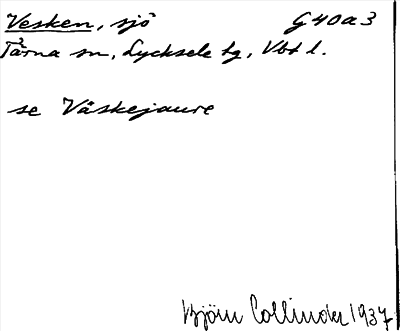 Vesken, sjö G40a3
Tärna sn, Lycksele tg, Vbt l.
se Väskejaure
Björn Collinder 1937